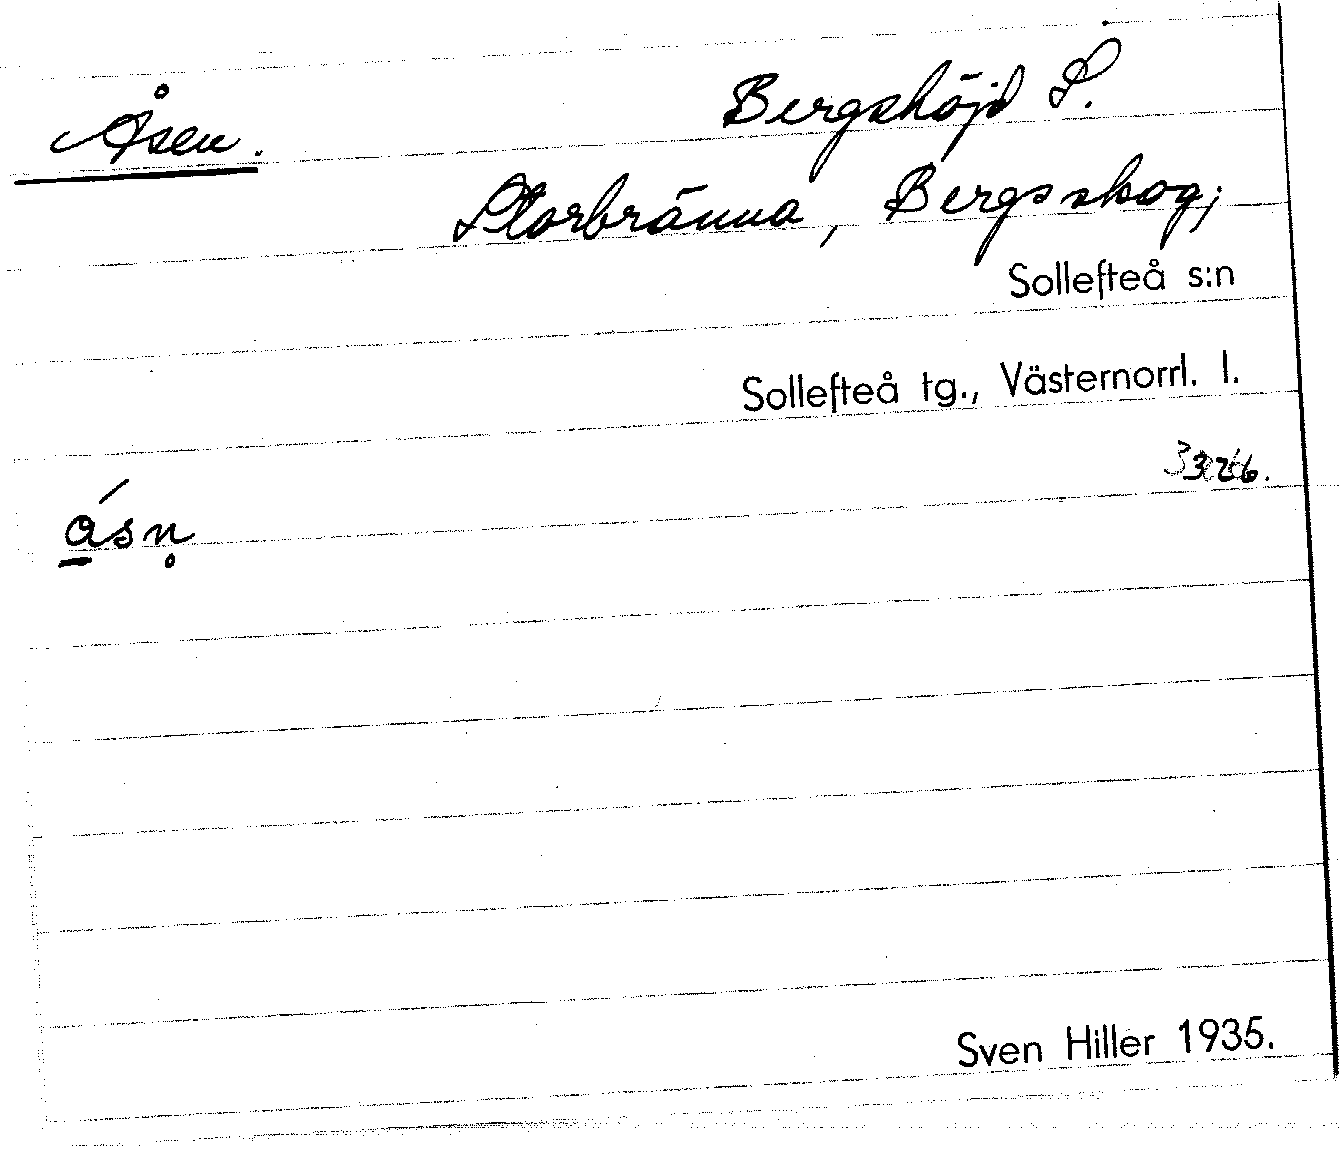 Åsen.
Bergshöjd S.
Storbränna, Bergsskog,
Sollefteå s:n
Sollefteå tg., Västernorrl. l.
ásn̥
Sven Hiller 1935.